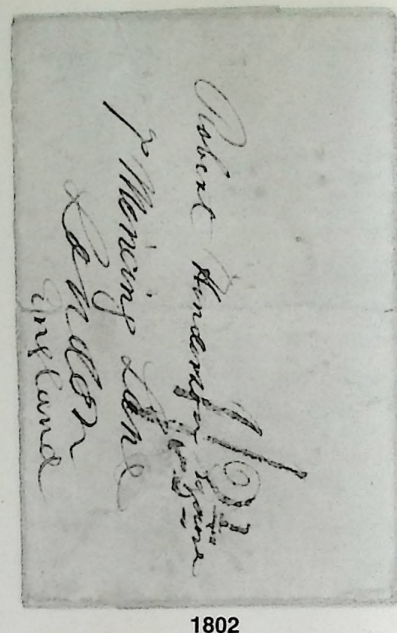 Robert Henderson Esquire
7 Mincing Lane
London
England
1802